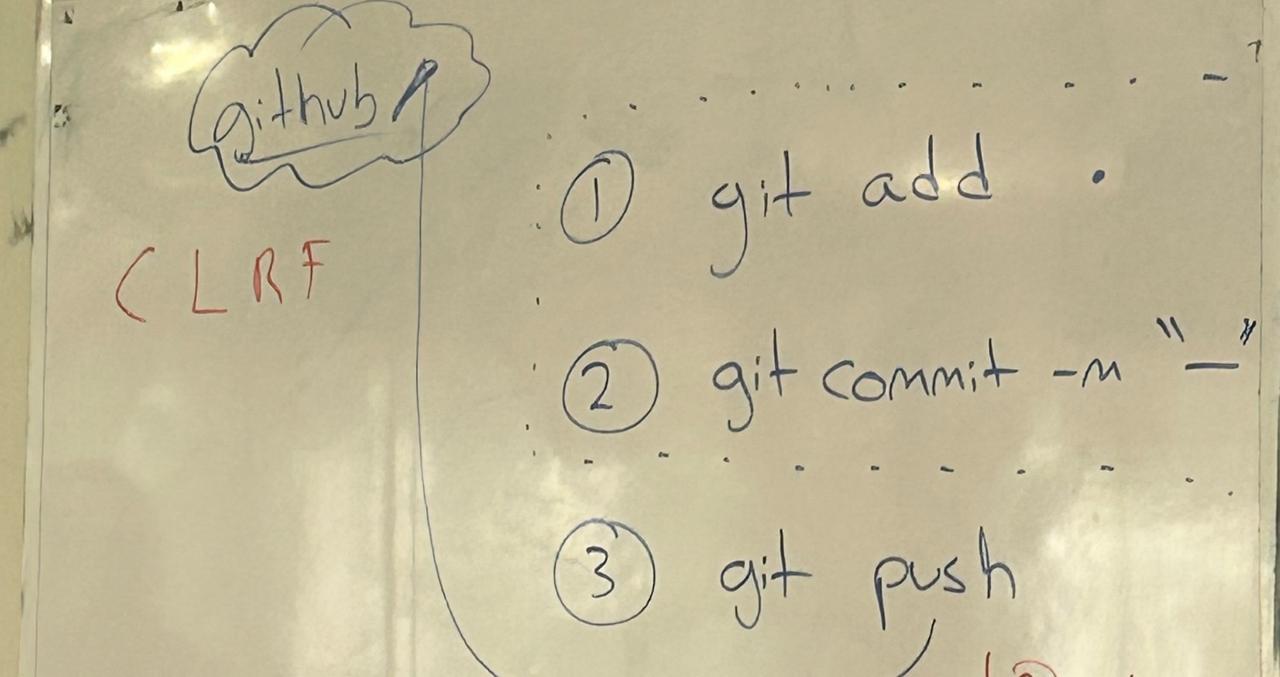 github
CLRF
① git add .
② git commit -m "—"
③ git push